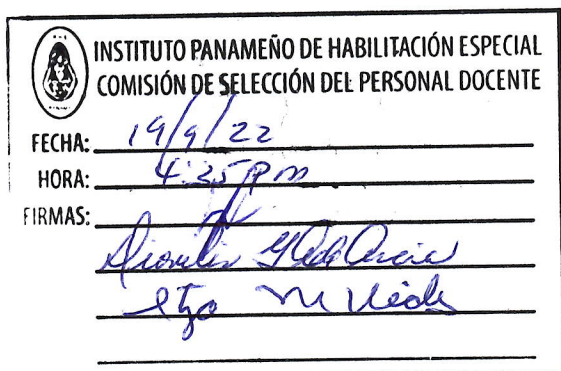 INSTITUTO PANAMEÑO DE HABILITACIÓN ESPECIAL
COMISIÓN DE SELECCIÓN DEL PERSONAL DOCENTE
FECHA: 19/9/22
HORA: 4:25 pm
FIRMAS: